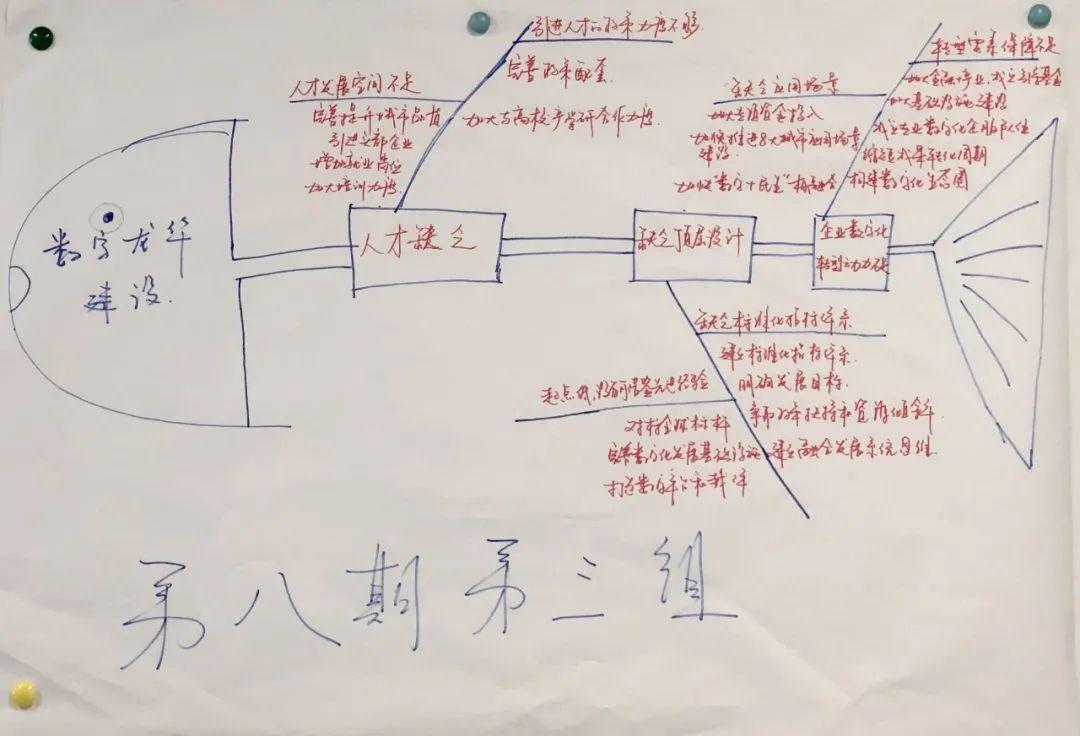 数字龙华
建设.
人才缺乏
引进人才的政策力度不够.
完善政策配套
加大与高校产学研合作力度.
人才发展空间不足
完善提升城市品质
引进总部企业
增加就业岗位
加大培训力度.
缺乏顶层设计
缺乏应用场景
加大专项资金投入
加快推进8大城市应用场景
建设.
加快"数字+民生"相融合
缺乏标准化指标体系
建立标准化指标体系.
明确发展目标.
争取政策扶持和资源倾斜.
建立融合发展系统思维.
起点低,没有可借鉴先进经验
对标全球标杆
完善数字化发展基础设施
打造数字平台和载体
企业数字化
转型动力不足
转型要素保障不足
加大基础设施建设
成立专业数字化企服队伍
缩短成果转化周期
构建数字化生态圈
第八期第三组